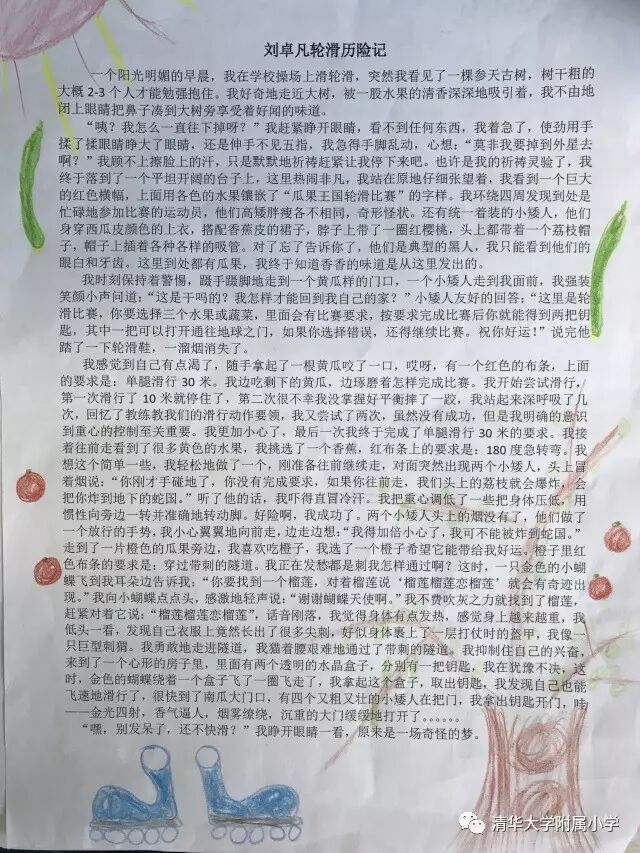 刘卓凡轮滑历险记
一个阳光明媚的早晨，我在学校操场上滑轮滑，突然我看见了一棵参天古树，树干粗的
大概 2-3 个人才能勉强抱住。我好奇地走近大树，被一股水果的清香深深地吸引着，我不由地
闭上眼睛把鼻子凑到大树旁享受着好闻的味道。
“咦？我怎么一直往下掉呀？”我赶紧睁开眼睛，看不到任何东西，我着急了，使劲用手
揉了揉眼睛睁大了眼睛，还是伸手不见五指，我急得手脚乱动，心想：“莫非我要掉到外星去
啊？”我顾不上擦脸上的汗，只是默默地祈祷赶紧让我停下来吧。也许是我的祈祷灵验了，我
终于落到了一个平坦开阔的台子上，这里热闹非凡，我站在原地仔细张望着，我看到一个巨大
的红色横幅，上面用各色的水果镶嵌了“瓜果王国轮滑比赛”的字样。我环绕四周发现到处是
忙碌地参加比赛的运动员，他们高矮胖瘦各不相同，奇形怪状。还有统一着装的小矮人，他们
身穿西瓜皮颜色的上衣，搭配香蕉皮的裙子，脖子上带了一圈红樱桃，头上都带着一个荔枝帽
子，帽子上插着各种各样的吸管。对了忘了告诉你了，他们是典型的黑人，我只能看到他们的
眼白和牙齿。这里到处都有瓜果，我终于知道香香的味道是从这里发出的。
我时刻保持着警惕，蹑手蹑脚地走到一个黄瓜样的门口，一个小矮人走到我面前，我强装
笑颜小声问道：“这是干吗的？我怎样才能回到我自己的家？”小矮人友好的回答：“这里是轮
滑比赛，你要选择三个水果或蔬菜，里面会有比赛要求，按要求完成比赛后你就能得到两把钥
匙，其中一把可以打开通往地球之门，如果你选择错误，还得继续比赛。祝你好运！”说完他
踏了一下轮滑鞋，一溜烟消失了。
我感觉到自己有点渴了，随手拿起了一根黄瓜咬了一口，哎呀，有一个红色的布条，上面
的要求是：单腿滑行 30 米。我边吃剩下的黄瓜，边琢磨着怎样完成比赛。我开始尝试滑行，
第一次滑行了 10 米就停住了，第二次很不幸我没掌握好平衡摔了一跤，我站起来深呼吸了几
次，回忆了教练教我们的滑行动作要领，我又尝试了两次，虽然没有成功，但是我明确的意识
到重心的控制至关重要。我更加小心了，最后一次我终于完成了单腿滑行 30 米的要求。我接
着往前走看到了很多黄色的水果，我挑选了一个香蕉，红布条上的要求是：180 度急转弯。我
想这个简单一些，我轻松地做了一个，刚准备往前继续走，对面突然出现两个小矮人，头上冒
着烟说：“你刚才手碰地了，你没有完成要求，如果你往前走，我们头上的荔枝就会爆炸，会
把你炸到地下的蛇国。”听了他的话，我吓得直冒冷汗。我把重心调低了一些把身体压低，用
惯性向旁边一转并准确地转动脚。好险啊，我成功了。两个小矮人头上的烟没有了，他们做了
一个放行的手势，我小心翼翼地向前走，边走边想：“我得加倍小心了，我可不能被炸到蛇国。”
走到了一片橙色的瓜果旁边，我喜欢吃橙子，我选了一个橙子希望它能带给我好运。橙子里红
色布条的要求是：穿过带刺的隧道。我正在发愁都是刺我怎样通过啊？这时，一只金色的小蝴
蝶飞到我耳朵边告诉我：“你要找到一个榴莲，对着榴莲说‘榴莲榴莲恋榴莲’就会有奇迹出
现。”我向小蝴蝶点点头，感激地轻声说：“谢谢蝴蝶天使啊。”我不费吹灰之力就找到了榴莲，
赶紧对着它说：“榴莲榴莲恋榴莲”，话音刚落，我觉得身体有点发热，感觉身上越来越重，我
低头一看，发现自己衣服上竟然长出了很多尖刺，好似身体裹上了一层打仗时的盔甲，我像一
只巨型刺猬。我勇敢地走进隧道，我猫着腰艰难地通过了带刺的隧道。我抑制住自己的兴奋，
来到了一个心形的房子里，里面有两个透明的水晶盒子，分别有一把钥匙，我在犹豫不决，这
时，金色的蝴蝶绕着一个盒子飞了一圈飞走了，我拿起这个盒子，取出钥匙，我发现自己也能
飞速地滑行了，很快到了南瓜大门口，有四个又粗又壮的小矮人在把门，我拿出钥匙开门，哇
——金光四射，香气逼人，烟雾缭绕，沉重的大门缓缓地打开了。。。。。。
“嘿，别发呆了，还不快滑？”我睁开眼睛一看，原来是一场奇怪的梦。
清华大学附属小学